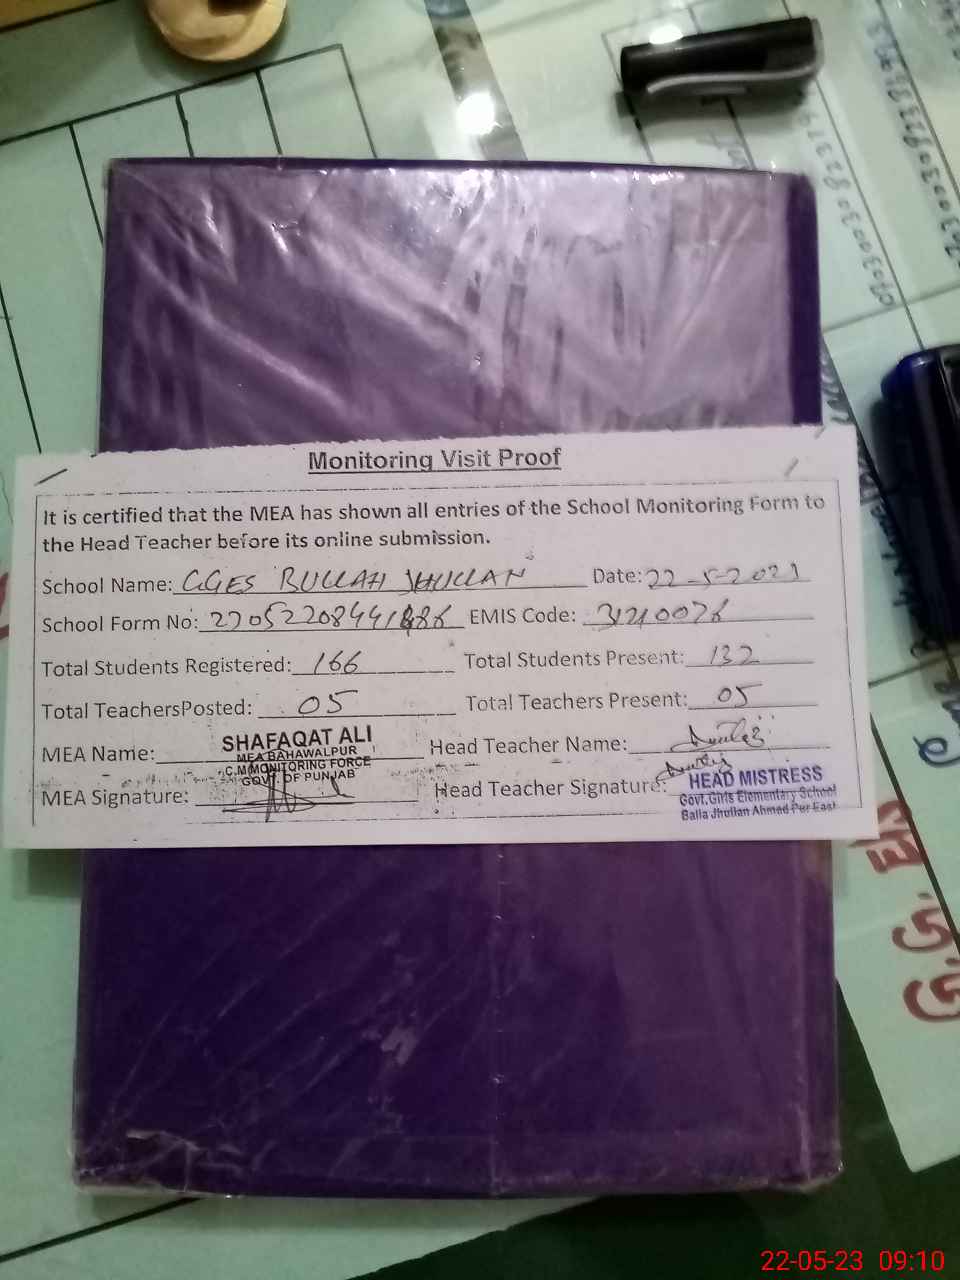 Monitoring Visit Proof
It is certified that the MEA has shown all entries of the School Monitoring Form to
the Head Teacher before its online submission.
School Name: GGES BULLAH JHULLAN Date: 22-5-2023
School Form No: EMIS Code: 31210076
Total Students Registered: 166 Total Students Present: 132
Total TeachersPosted: 05 Total Teachers Present: 05
MEA Name: SHAFAQAT ALI Head Teacher Name:
MEA BAHAWALPUR
C.M MONITORING FORCE
GOVT OF PUNJAB
MEA Signature: Head Teacher Signature:
HEAD MISTRESS
Govt.Girls Elementary School
Balla Jhullan Ahmad Pur East
G.G.
22-05-23 09:10